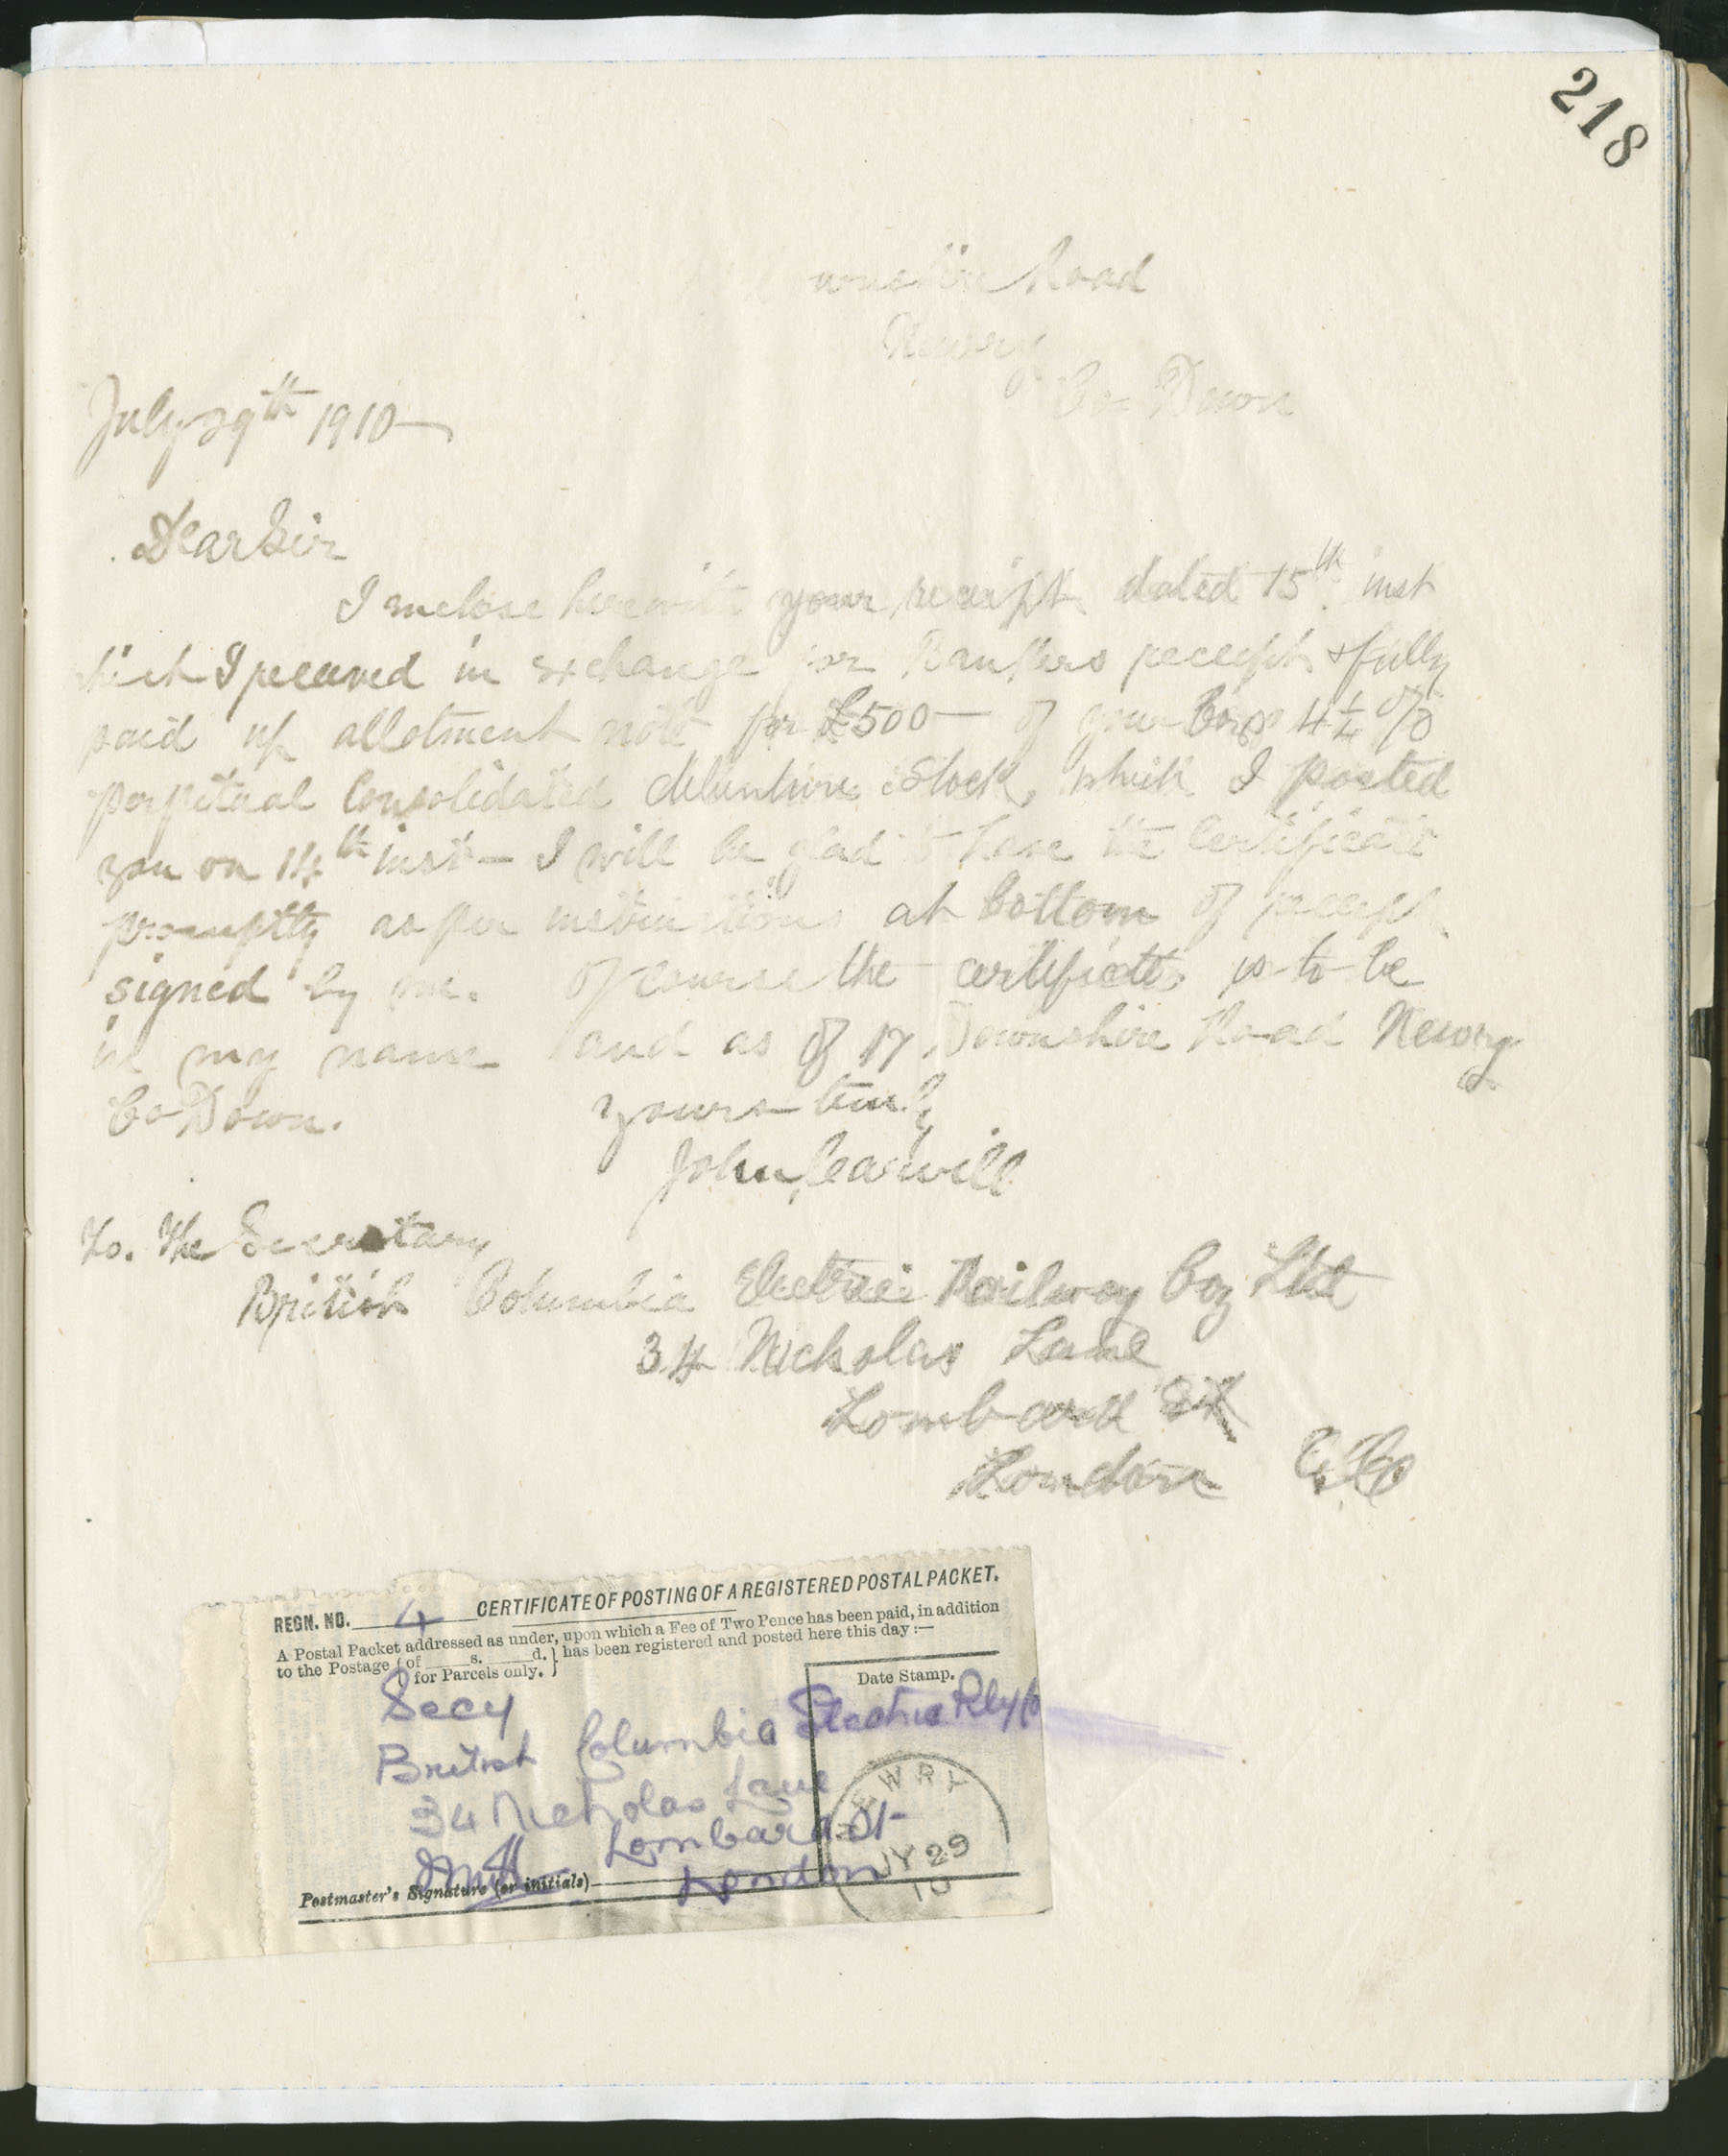 218
Road
Newry
Co Down
July 29th 1910
Dear Sir
I enclose herewith your receipt dated 15th inst
which I received in exchange for Bankers receipt & fully
paid up allotment note for £500 — of your Coys 4¼ %
perpetual Consolidated debenture Stock, which I posted
you on 14th inst — I will be glad to have the Certificate
promptly as per instructions at bottom of receipt
signed by me. Of course the certificate is to be
in my name and as of 17 Downshire Road Newry
Co Down.
yours truly
John
To. The Secretary
British Columbia Electric Railway Coy Ltd
34 Nicholas Lane
Lombard St
London E.C.
REGN. NO. 4 CERTIFICATE OF POSTING OF A REGISTERED POSTAL PACKET.
A Postal Packet addressed as under, upon which a Fee of Two Pence has been paid, in addition
to the Postage { of ___ s. ___ d. } has been registered and posted here this day :—
for Parcels only.
Date Stamp.
Secy
British Columbia Electric Rly Co
34 Nicholas Lane
Lombard St
London
Postmaster's Signature (or initials)
NEWRY
JY 29
10